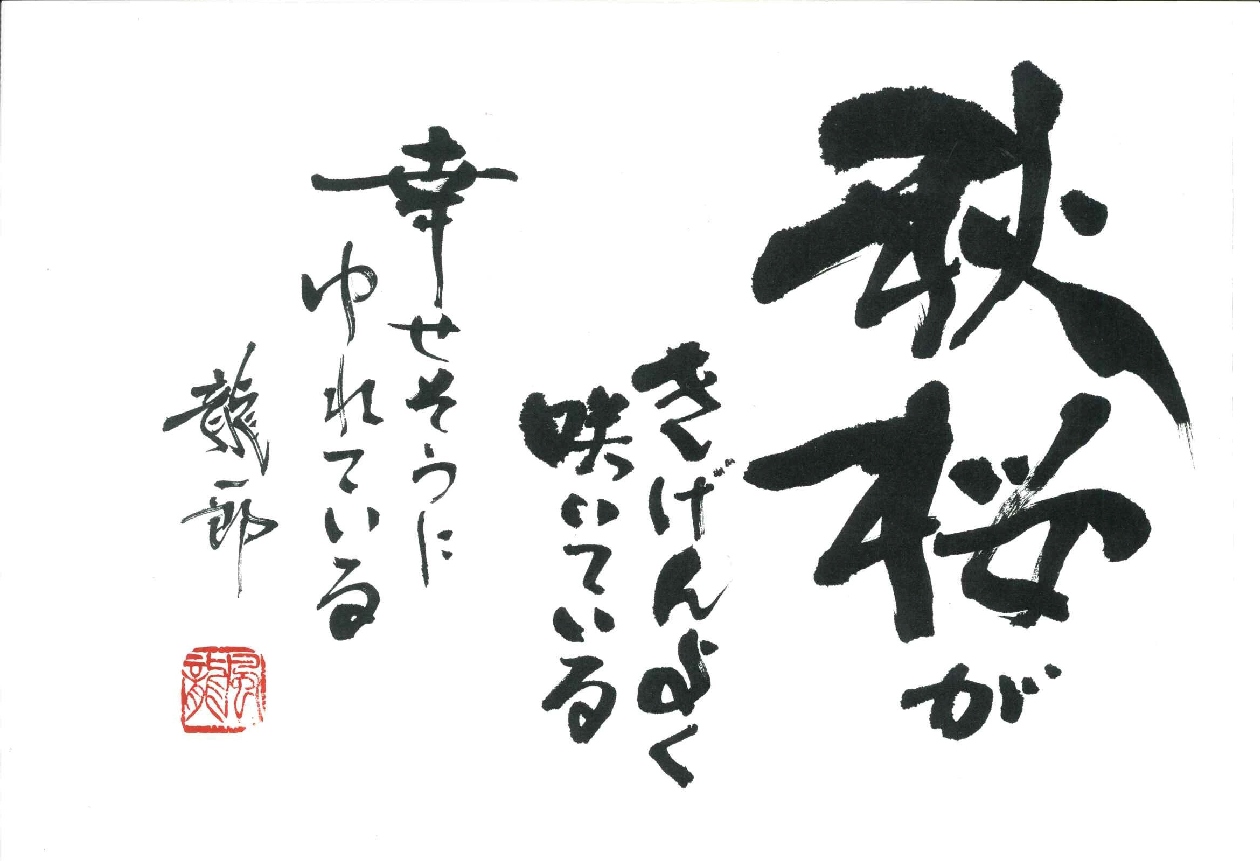 秋桜が
きげんよく
咲いている
幸せそうに
ゆれている
龍一郎
風龍